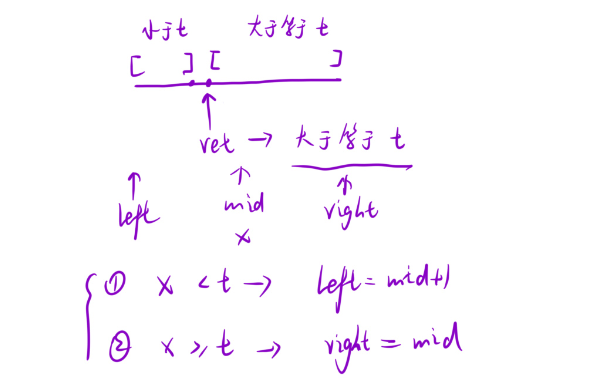 小于t 大于等于 t
[ ] [ ]
ret → 大于等于 t
left mid right
x
① x < t → left = mid+1
② x ≥ t → right = mid